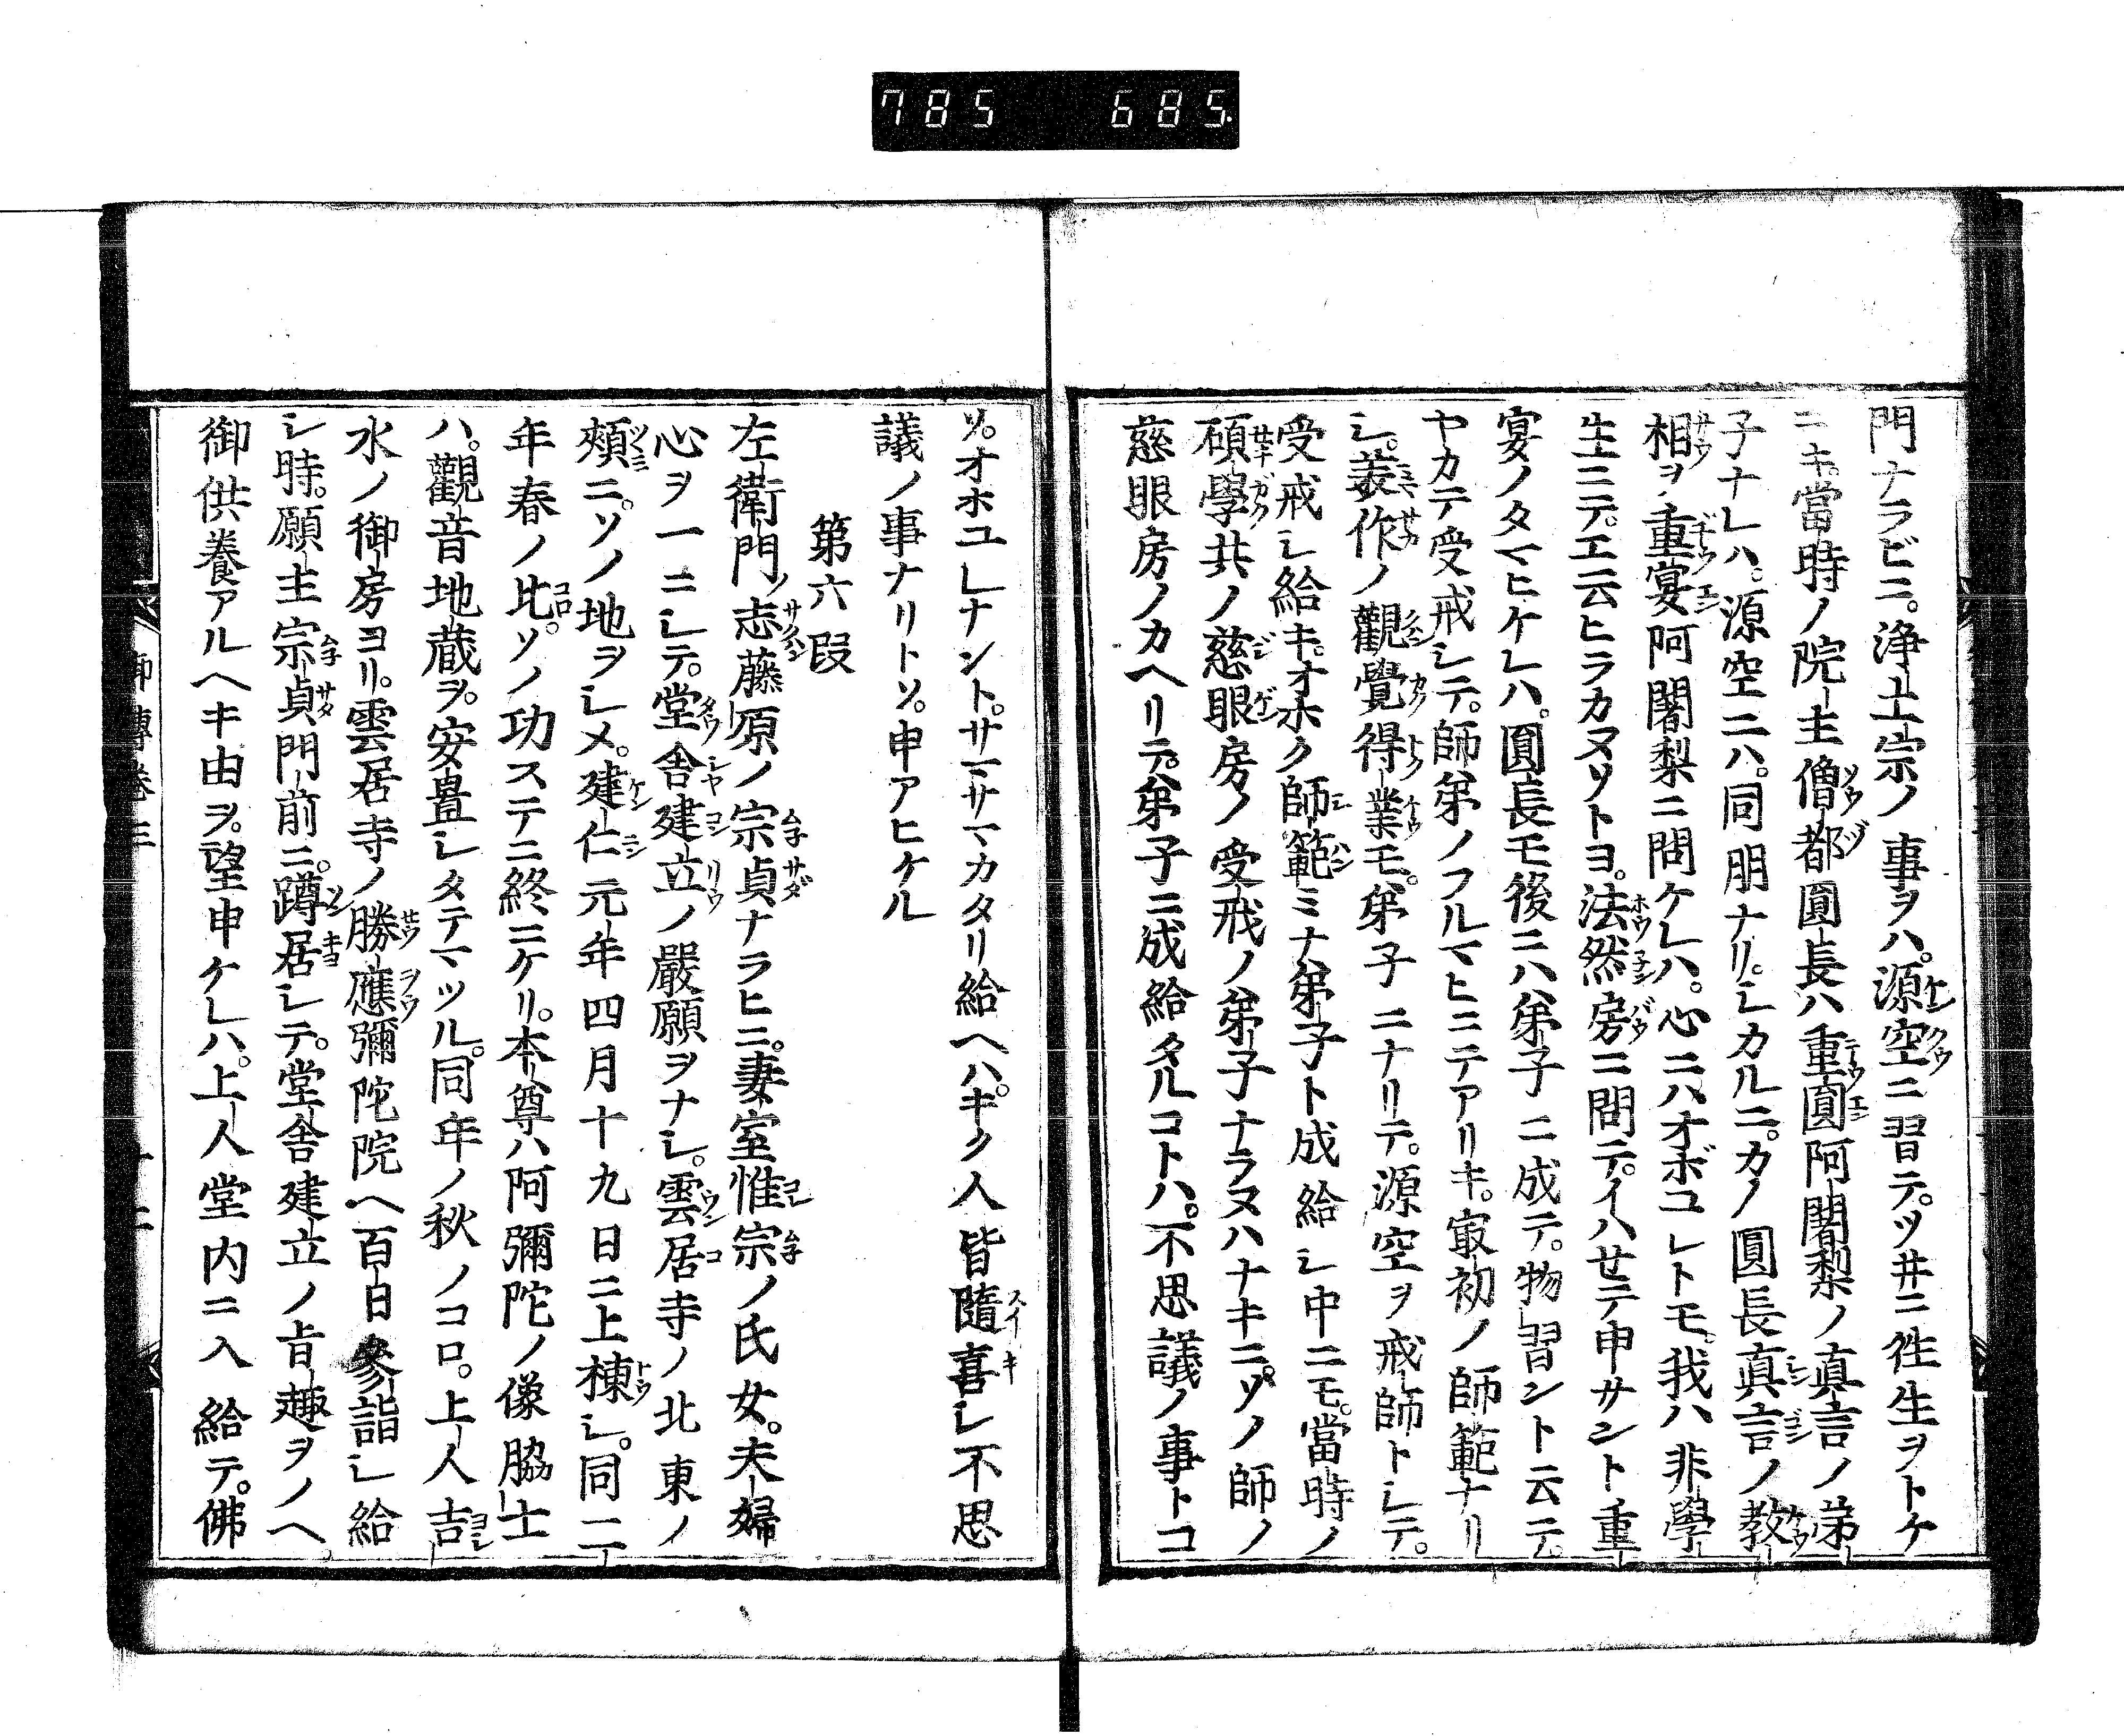 785 685.
門ナラビニ。浄土宗ノ事ヲハ。源空ニ習テ。ツ井ニ徃生ヲトケ
ニキ。當時ノ院主僧都圓長ハ重圓阿闍梨ノ真言ノ弟
子ナレハ。源空ニハ。同朋ナリ。シカルニ。カノ圓長真言ノ教
相ヲ重宴阿闍梨ニ問ケレハ。心ニハオボユレトモ。我ハ非學
生ニテ。エ云ヒラカヌソトヨ。法然房ニ問テ。イハせテ申サント重
宴ノタマヒケレハ。圓長モ後ニハ弟子ニ成テ。物習ントテ云テ。
ヤカテ受戒シテ。師弟ノフルマヒニテアリキ。㝡初ノ師範ナリ
シ。美作ノ觀覺得業モ。弟子ニナリテ。源空ヲ戒師トシテ。
受戒シ給キ。オホク師範ミナ弟子ト成給シ中ニモ。當時ノ
碩學共ノ慈眼房ノ受戒ノ弟子ナラヌハナキニ。ソノ師ノ
慈眼房ノカヘリテ。弟子ニ成給タルコトハ。不思議ノ事トコ
ソ。オホユレナント。サマサマカタリ給ヘハ。キク人皆隨喜シ不思
議ノ事ナリトソ。申アヒケル
第六段
左衛門ノ志藤原ノ宗貞ナラヒニ。妻室惟宗ノ氏女。夫婦
心ヲ一ニシテ。堂舎建立ノ嚴願ヲナシ。雲居寺ノ北東ノ
頰ニ。ソノ地ヲシメ。建仁元年四月十九日ニ上棟シ。同二
年春ノ比。ソノ功ステニ終ニケリ。本尊ハ阿彌陀ノ像脇士
ハ。觀音地蔵ヲ。安置シタテマツル。同年ノ秋ノコロ。上人吉
水ノ御房ヨリ。雲居寺ノ勝應彌陀院ヘ百日參詣シ給
シ時。願主宗貞門前ニ。蹲居シテ。堂舎建立ノ旨趣ヲノヘ。
御供養アルヘキ由ヲ。望申ケレハ。上人堂内ニ入給テ。佛